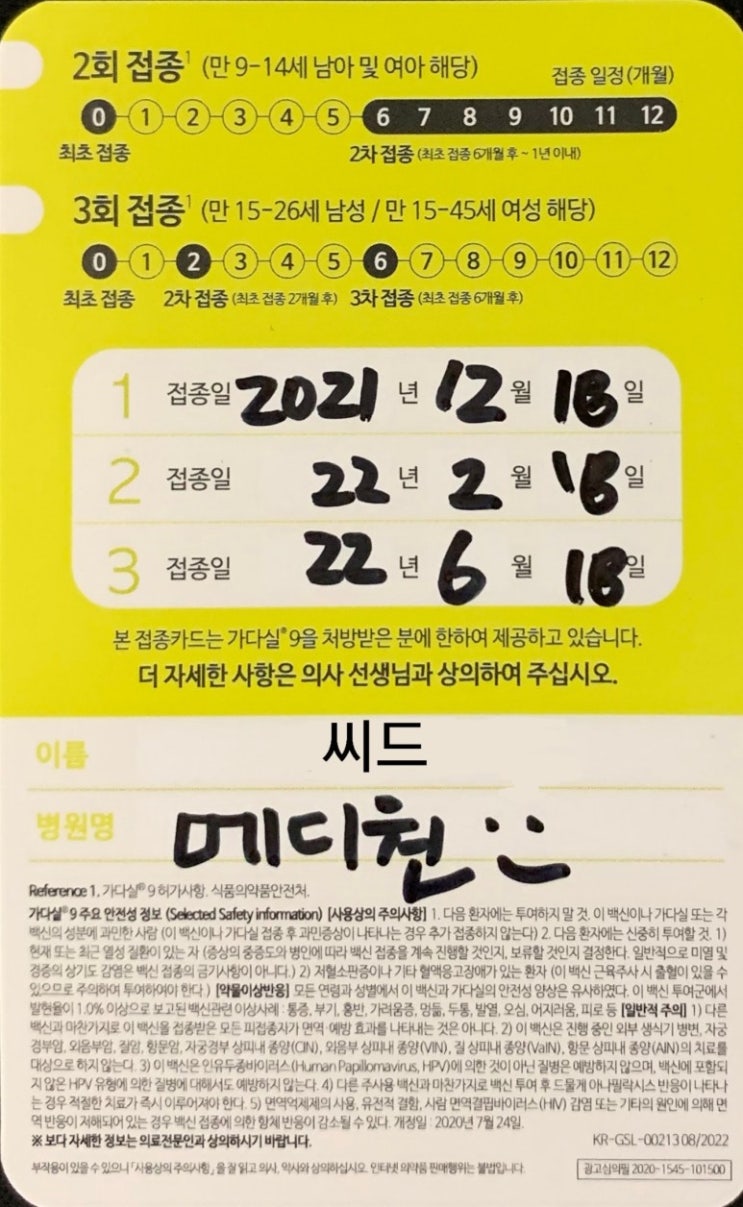 2회 접종¹ (만 9-14세 남아 및 여아 해당) 접종 일정(개월)
0 1 2 3 4 5 6 7 8 9 10 11 12
최초 접종 2차 접종 (최초 접종 6개월 후 ~ 1년 이내)
3회 접종¹ (만 15-26세 남성 / 만 15-45세 여성 해당)
0 1 2 3 4 5 6 7 8 9 10 11 12
최초 접종 2차 접종 (최초 접종 2개월 후) 3차 접종 (최초 접종 6개월 후)
1 접종일 2021 년 12 월 18 일
2 접종일 22 년 2 월 18 일
3 접종일 22 년 6 월 18 일
본 접종카드는 가다실®9을 처방받은 분에 한하여 제공하고 있습니다.
더 자세한 사항은 의사 선생님과 상의하여 주십시오.
이름 씨드
병원명 메디천
Reference 1. 가다실® 9 허가사항. 식품의약품안전처.
가다실® 9 주요 안전성 정보 (Selected Safety information) [사용상의 주의사항] 1. 다음 환자에는 투여하지 말 것. 이 백신이나 가다실 또는 각
백신의 성분에 과민한 사람 (이 백신이나 가다실 접종 후 과민증상이 나타나는 경우 추가 접종하지 않는다) 2. 다음 환자에는 신중히 투여할 것. 1)
현재 또는 최근 열성 질환이 있는 자 (증상의 중증도와 병인에 따라 백신 접종을 계속 진행할 것인지, 보류할 것인지 결정한다. 일반적으로 미열 및
경증의 상기도 감염은 백신 접종의 금기사항이 아니다.) 2) 저혈소판증이나 기타 혈액응고장애가 있는 환자 (이 백신 근육주사 시 출혈이 있을 수
있으므로 주의하여 투여하여야 한다.) [약물이상반응] 모든 연령과 성별에서 이 백신과 가다실의 안전성 양상은 유사하였다. 이 백신 투여군에서
발현율이 1.0% 이상으로 보고된 백신관련 이상사례 : 통증, 부기, 홍반, 가려움증, 멍듦, 두통, 발열, 오심, 어지러움, 피로 등 [일반적 주의] 1) 다른
백신과 마찬가지로 이 백신을 접종받은 모든 피접종자가 면역 예방 효과를 나타내는 것은 아니다. 2) 이 백신은 진행 중인 외부 생식기 병변, 자궁
경부암, 외음부암, 질암, 항문암, 자궁경부 상피내 종양(CIN), 외음부 상피내 종양(VIN), 질 상피내 종양(VaIN), 항문 상피내 종양(AIN)의 치료를
대상으로 하지 않는다. 3) 이 백신은 인유두종바이러스(Human Papillomavirus, HPV)에 의한 것이 아닌 질병은 예방하지 않으며, 백신에 포함되
지 않은 HPV 유형에 의한 질병에 대해서도 예방하지 않는다. 4) 다른 주사용 백신과 마찬가지로 백신 투여 후 드물게 아나필락시스 반응이 나타나
는 경우 적절한 치료가 즉시 이루어져야 한다. 5) 면역억제제의 사용, 유전적 결함, 사람 면역결핍바이러스(HIV) 감염 또는 기타의 원인에 의해 면
역 반응이 저해되어 있는 경우 백신 접종에 의한 항체 반응이 감소될 수 있다. 개정일 : 2020년 7월 24일.
※ 보다 자세한 정보는 의료전문인과 상의하시기 바랍니다. KR-GSL-00213 08/2022
부작용이 있을 수 있으니 「사용상의 주의사항」을 잘 읽고 의사, 약사와 상의하십시오. 인터넷 의약품 판매행위는 불법입니다. 광고심의필 2020-1545-101500